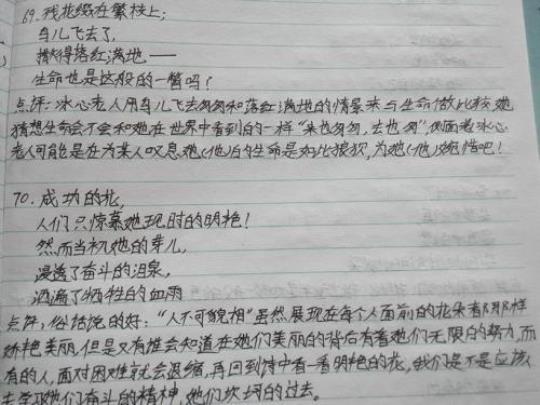 69. 残花缀在繁枝上;
鸟儿飞去了,
撒得落红满地——
生命也是这般的一瞥吗?
点评:冰心老人用鸟儿飞去匆匆和落红满地的情景来与生命做比较她
猜想生命会不会和她在世界中看到的一样"来也匆匆,去也匆"侧面看冰心
老人可能是在为某人叹息她(他)的生命是如此狼狈,为她(他)惋惜吧!
70. 成功的花,
人们只惊慕她现时的明艳!
然而当初她的芽儿,
浸透了奋斗的泪泉,
洒遍了牺牲的血雨
点评:俗话说的好:"人不可貌相"虽然展现在每个人面前的花朵都那样
娇艳美丽,但是又有谁会知道在她们美丽的背后有着她们无限的努力,而
有的人,面对困难就会退缩,再回到诗中看一看明艳的花,我们是不是应该
去学取她们奋斗的精神,她们坎坷的过去。